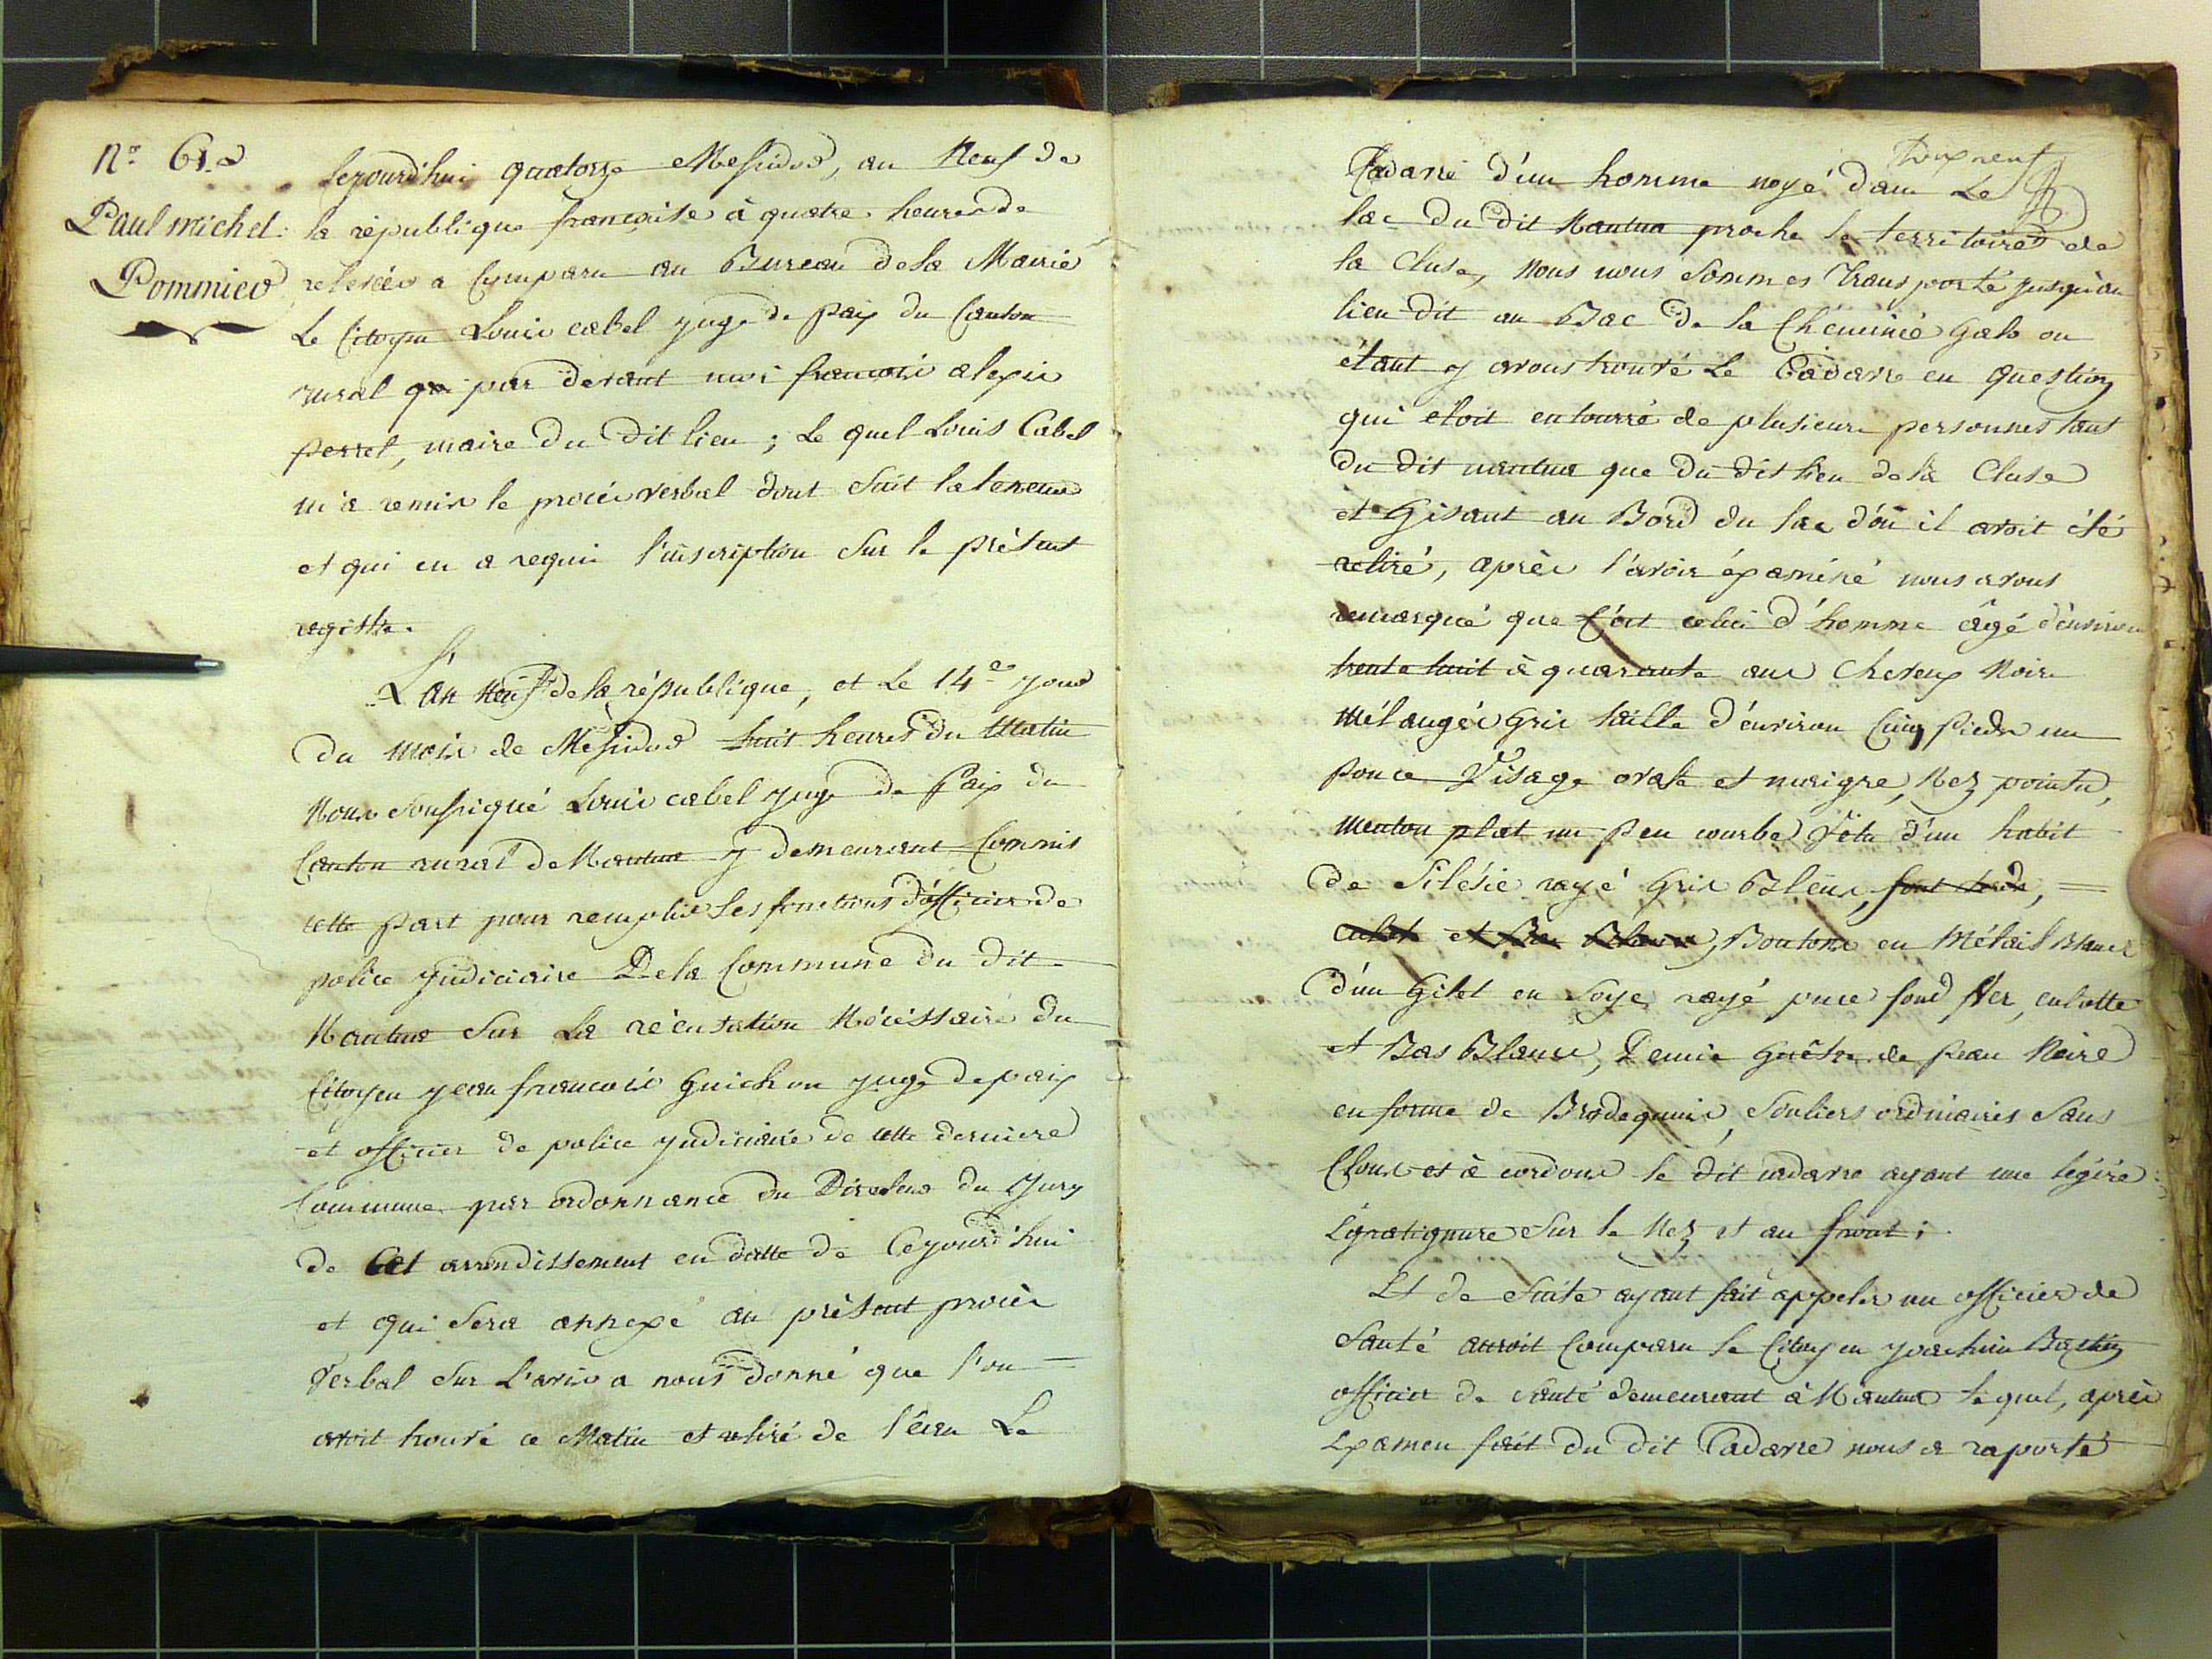 N.° 61.
Paul michel
Pommier
Cejourd'hui quatorze Messidor, an Neuf de
la république francoise à quatre heures de
relevée a Comparu au Bureau de la Mairie
Le Citoyen Louis cabel juge de paix du Canton
rural par devant moi francois alexis
perrel, maire du dit lieu ; Le quel Louis Cabel
m'a remis le procès verbal dont Suit la teneur
et qui en a requis l'inscription Sur le présent
registre.
L'an Neuf de la république, et Le 14.e jour
du mois de Messidor huit heures du Matin
Nous Soussigné Louis cabel juge de Paix du
Canton rural de Nantua y demeurant Commis
cette part pour remplir les fonctions d'officier de
police judiciaire De la Commune du dit
Nantua Sur La récusation Nécéssaire du
Citoyen jean francois Guichon juge de paix
et officier de police judiciaire de cette derniere
Commune par ordonnance du Directeur du Jury
de Cet arrondissement en datte de Cejourd'hui
et qui Sera annexé au présent procès
Verbal Sur L'avis a nous donné que l'on
avoit trouvé ce Matin et retiré de l'eau Le
Dix neuf
Cadavre d'un homme noyé dans Le
lac du dit Nantua proche le territoire de
la Cluse, Nous nous Sommes Transporté jusqu'au
lieu dit au Bac de la Cheminée Gals ou
étant y avons trouvé Le Cadavre en question
qui étoit entourré de plusieurs personnes tant
du dit nantua que du dit lieu de la Cluse
et Gisant au Bord du lac d'où il avoit été
retiré, après l'avoir éxaminé nous avons
remarqué que C'ért celui d'homme âgé d'énviron
trente huit à quarante ans Cheveux Noirs
Mélangés Gris taille d'énviron Cinq Pieds un
pouce Visage ovale et maigre, Nez pointu,
Menton plat un peu courbe Vêtu d'un habit
de Silésie rayé Gris Bleux,
et Bas Blancs, Boutons en Métail Blanc
d'un Gilet en Soye rayé puce fond Ver, culotte
et Bas Blancs, Demie Guêtre de peau Noire
en forme de Brodequins, Souliers ordinaires Sans
Cloux et à cordons le dit cadavre ayant une légère
Egratignure Sur le Nez et au front ;
Et de Suite ayant fait appeler un officier de
Santé auroit Comparu le Citoyen joachim Bastin
officier de Santé demeurant à Nantua lequel, après
Examen fait du dit Cadavre nous a raporté